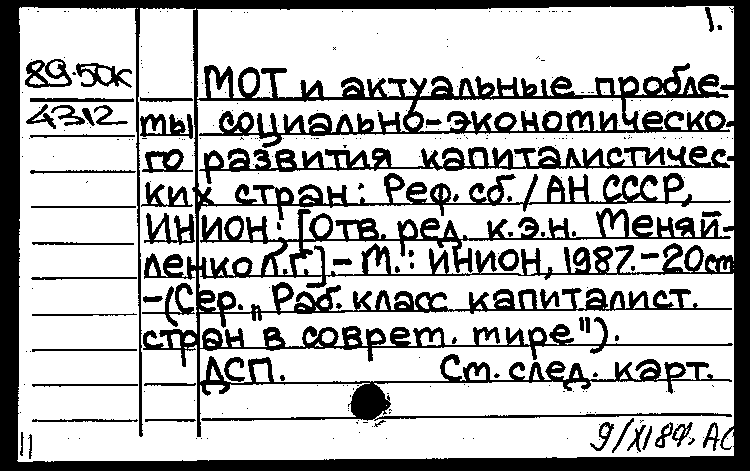 1.
89-50к МОТ и актуальные пробле-
4312 мы социально-экономическо-
го развития капиталистичес-
ких стран: Реф. сб. / АН СССР,
ИНИОН; [Отв. ред. к.э.н. Меняй-
ленко Л.Г.].- М.: ИНИОН, 1987.-20см
-(Сер. „Раб. класс капиталист.
стран в соврем. мире").
ДСП. См. след. карт.
9/XI 89г. АС
11